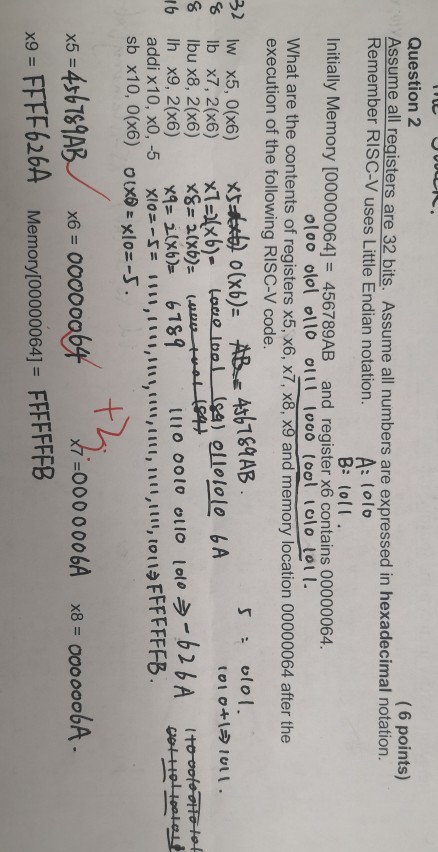 Question 2 ( 6 points)
Assume all registers are 32 bits. Assume all numbers are expressed in hexadecimal notation.
Remember RISC-V uses Little Endian notation.
A: 1010
B: 1011.
Initially Memory [00000064] = 456789AB and register x6 contains 00000064.
0100 0101 0110 0111 1000 1001 1010 1011.
What are the contents of registers x5, x6, x7, x8, x9 and memory location 00000064 after the
execution of the following RISC-V code.
32 lw x5, 0(x6) x5= 0(x6)= AB = 456789AB. 5 : 0101.
8 lb x7, 2(x6) x7=2(x6)= 1000 1001 (89) 01101010 6A 1010+1⇒1011.
8 lbu x8, 2(x6) x8=2(x6)= 1000 1001 (89)
16 lh x9, 2(x6) x9=2(x6)= 6789 1110 0010 0110 1010 ⇒ -626A
addi x10, x0, -5 x10=-5= 1111,1111,1111,1111,1111,1111,1111,1011⇒FFFFFFFB.
sb x10, 0(x6) 0(x6)=x10=-5.
x5 = 456789AB x6 = 00000064 x7 =0000006A x8 = 0000006A.
+3.
x9 = FFFF626A Memory[00000064] = FFFFFFFB